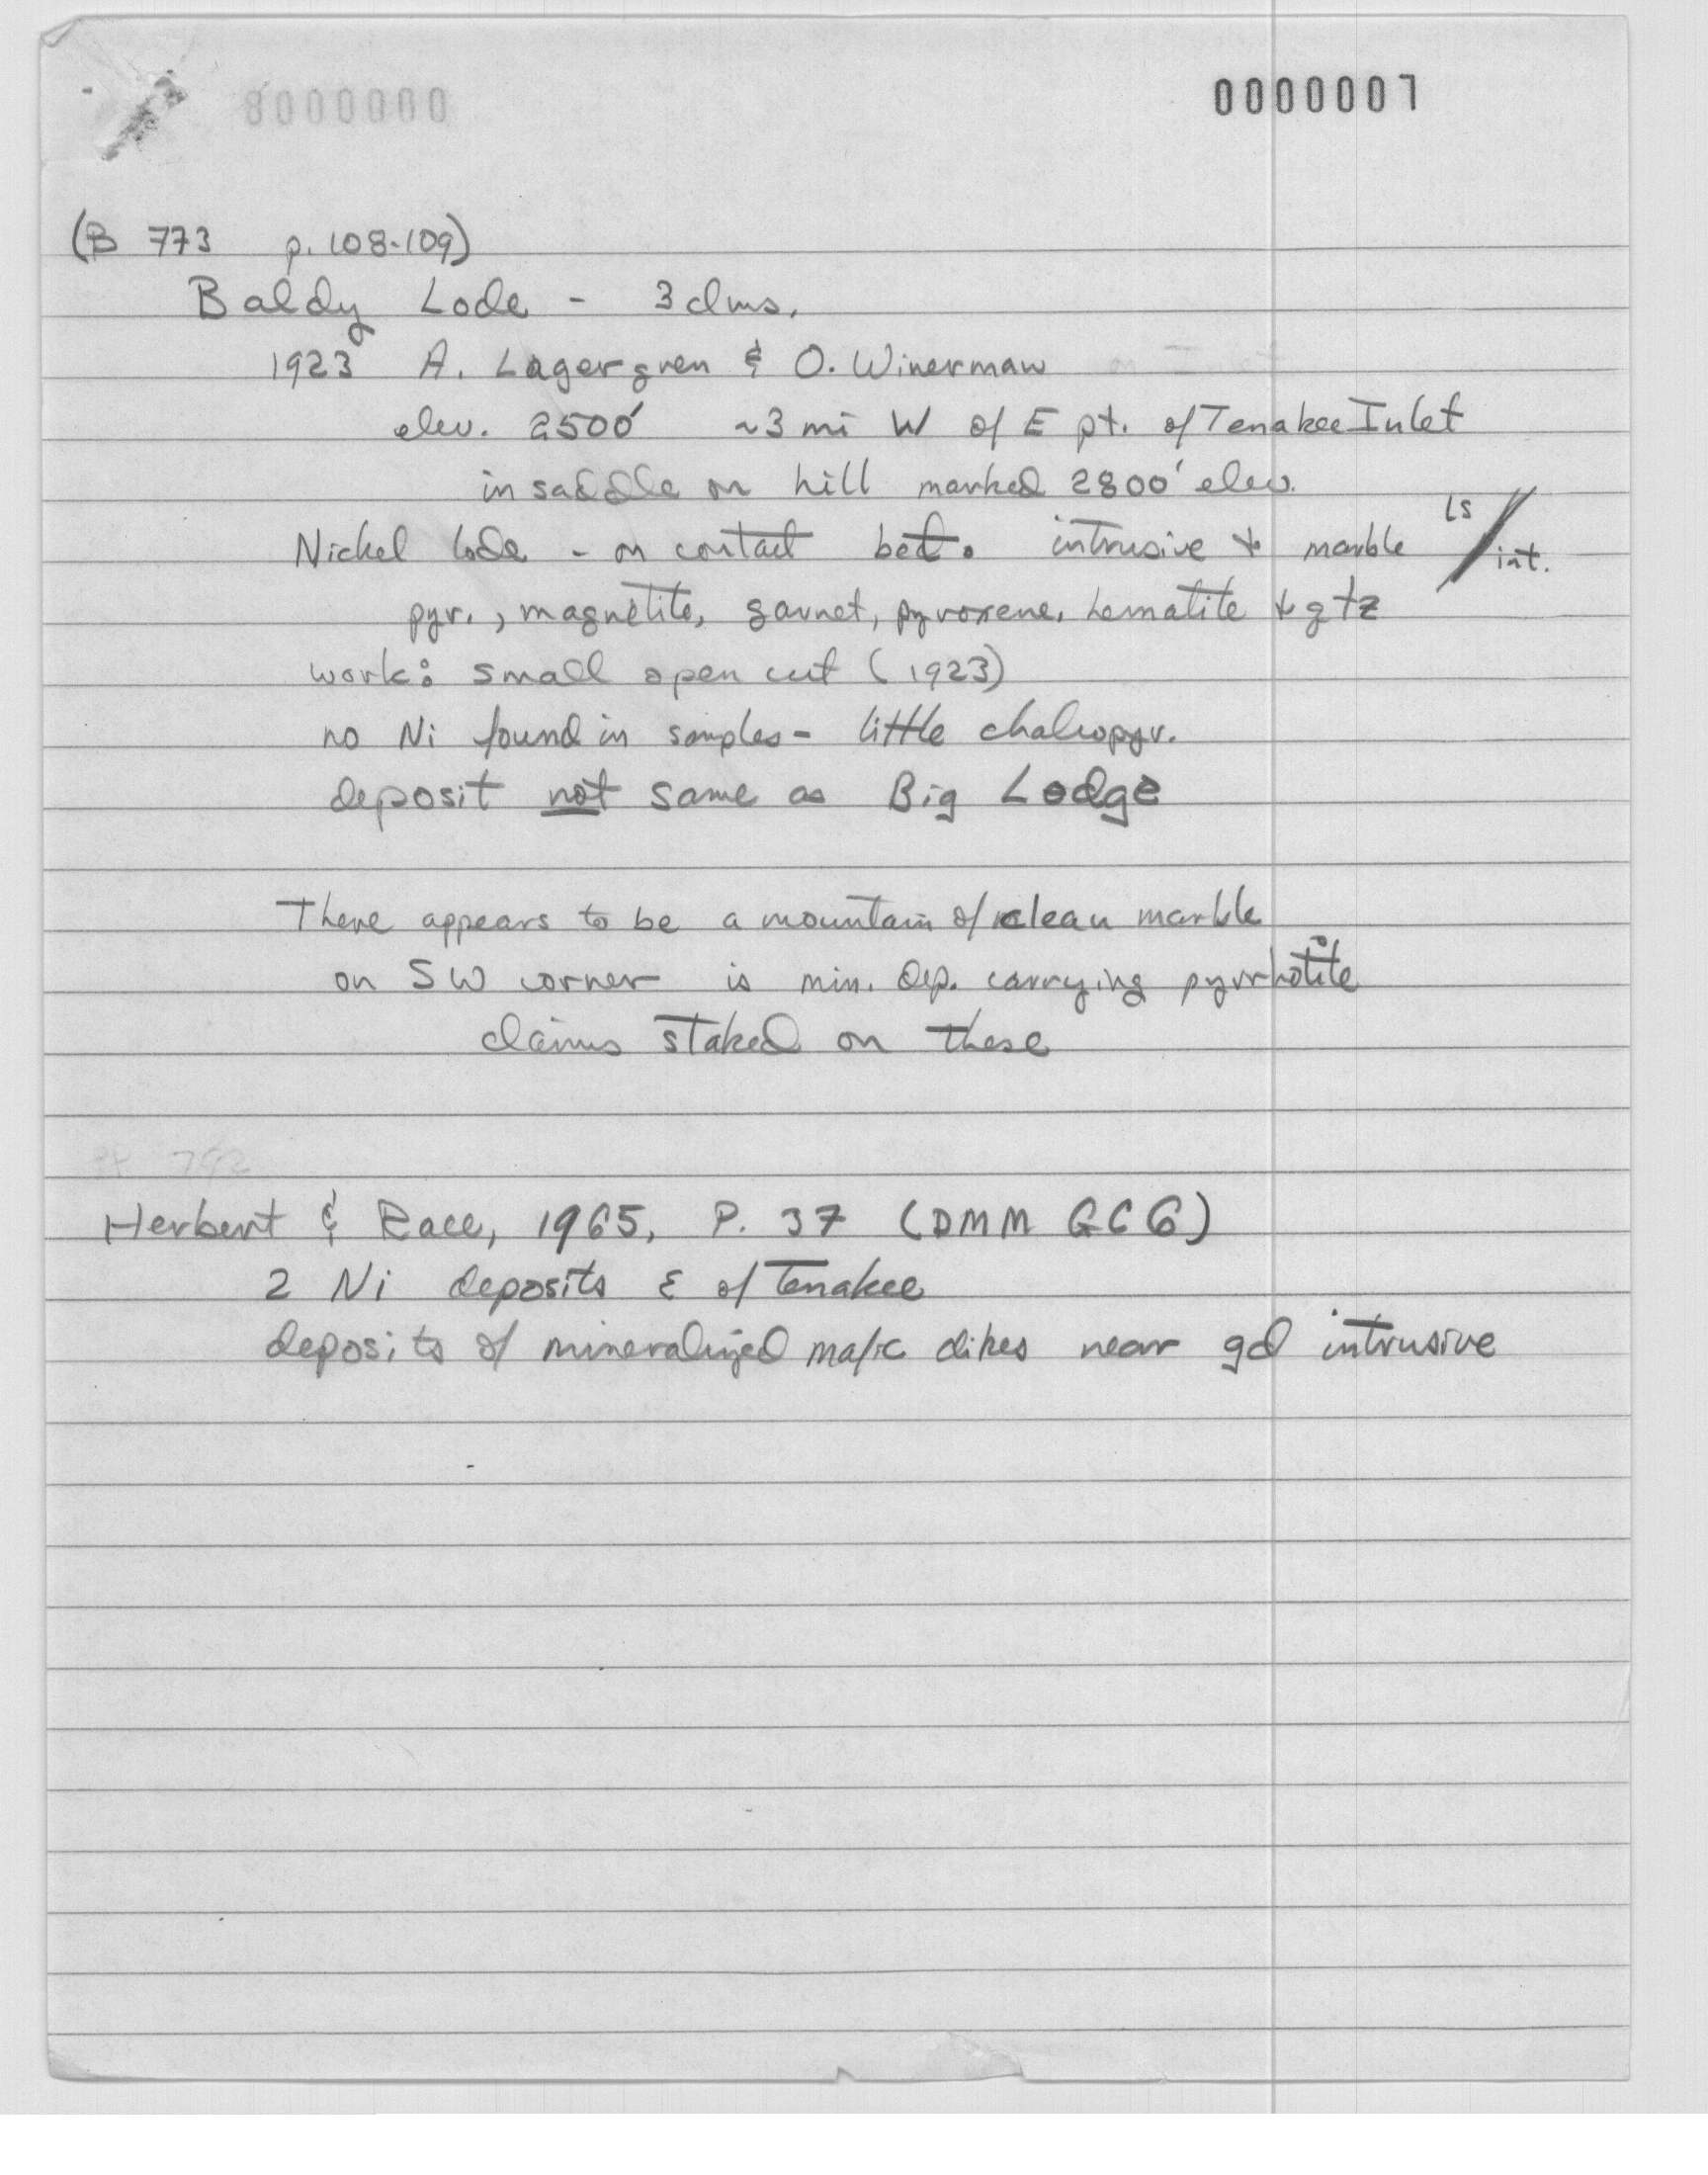 8000000
0000007
(B 773 p. 108-109)
Baldy Lode - 3 clms.
1923 A. Lagergren & O. Winerman
elev. 2500' ~3 mi W of E pt. of Tenakee Inlet
in saddle on hill marked 2800' elev.
Nickel lode - on contact bet. intrusive & marble LS / int.
pyr., magnetite, garnet, pyroxene, hematite & qtz
work: small open cut (1923)
no Ni found in samples - little chalcopyr.
deposit not same as Big Lodge
There appears to be a mountain of clean marble
on SW corner is min. dep. carrying pyrrhotite
claims staked on these
792
Herbert & Race, 1965, P. 37 (DMM GC6)
2 Ni deposits E of Tenakee
deposits of mineralized mafic dikes near gd intrusive